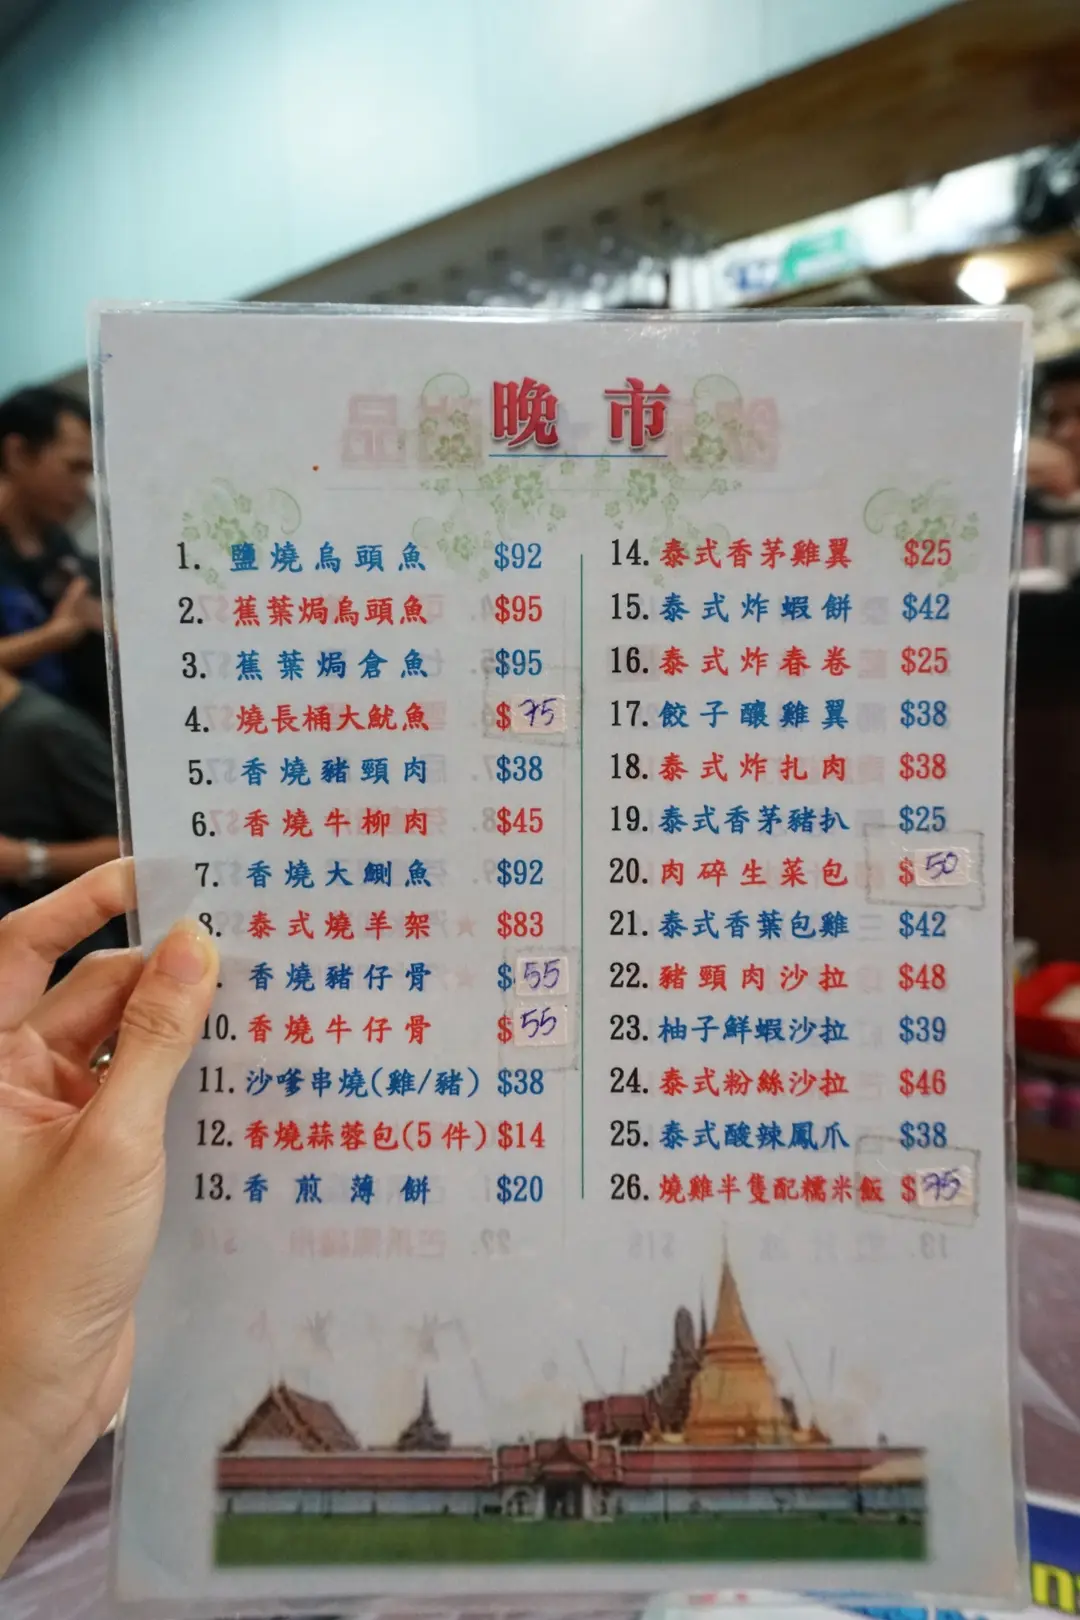 晚市
1. 鹽燒烏頭魚 $92
2. 蕉葉焗烏頭魚 $95
3. 蕉葉焗倉魚 $95
4. 燒長桶大魷魚 $75
5. 香燒豬頸肉 $38
6. 香燒牛柳肉 $45
7. 香燒大鯏魚 $92
8. 泰式燒羊架 $83
香燒豬仔骨 $55
10. 香燒牛仔骨 $55
11. 沙嗲串燒(雞/豬) $38
12. 香燒蒜蓉包(5件) $14
13. 香煎薄餅 $20
14. 泰式香茅雞翼 $25
15. 泰式炸蝦餅 $42
16. 泰式炸春卷 $25
17. 餃子釀雞翼 $38
18. 泰式炸扎肉 $38
19. 泰式香茅豬扒 $25
20. 肉碎生菜包 $50
21. 泰式香葉包雞 $42
22. 豬頸肉沙拉 $48
23. 柚子鮮蝦沙拉 $39
24. 泰式粉絲沙拉 $46
25. 泰式酸辣鳳爪 $38
26. 燒雞半隻配糯米飯 $75